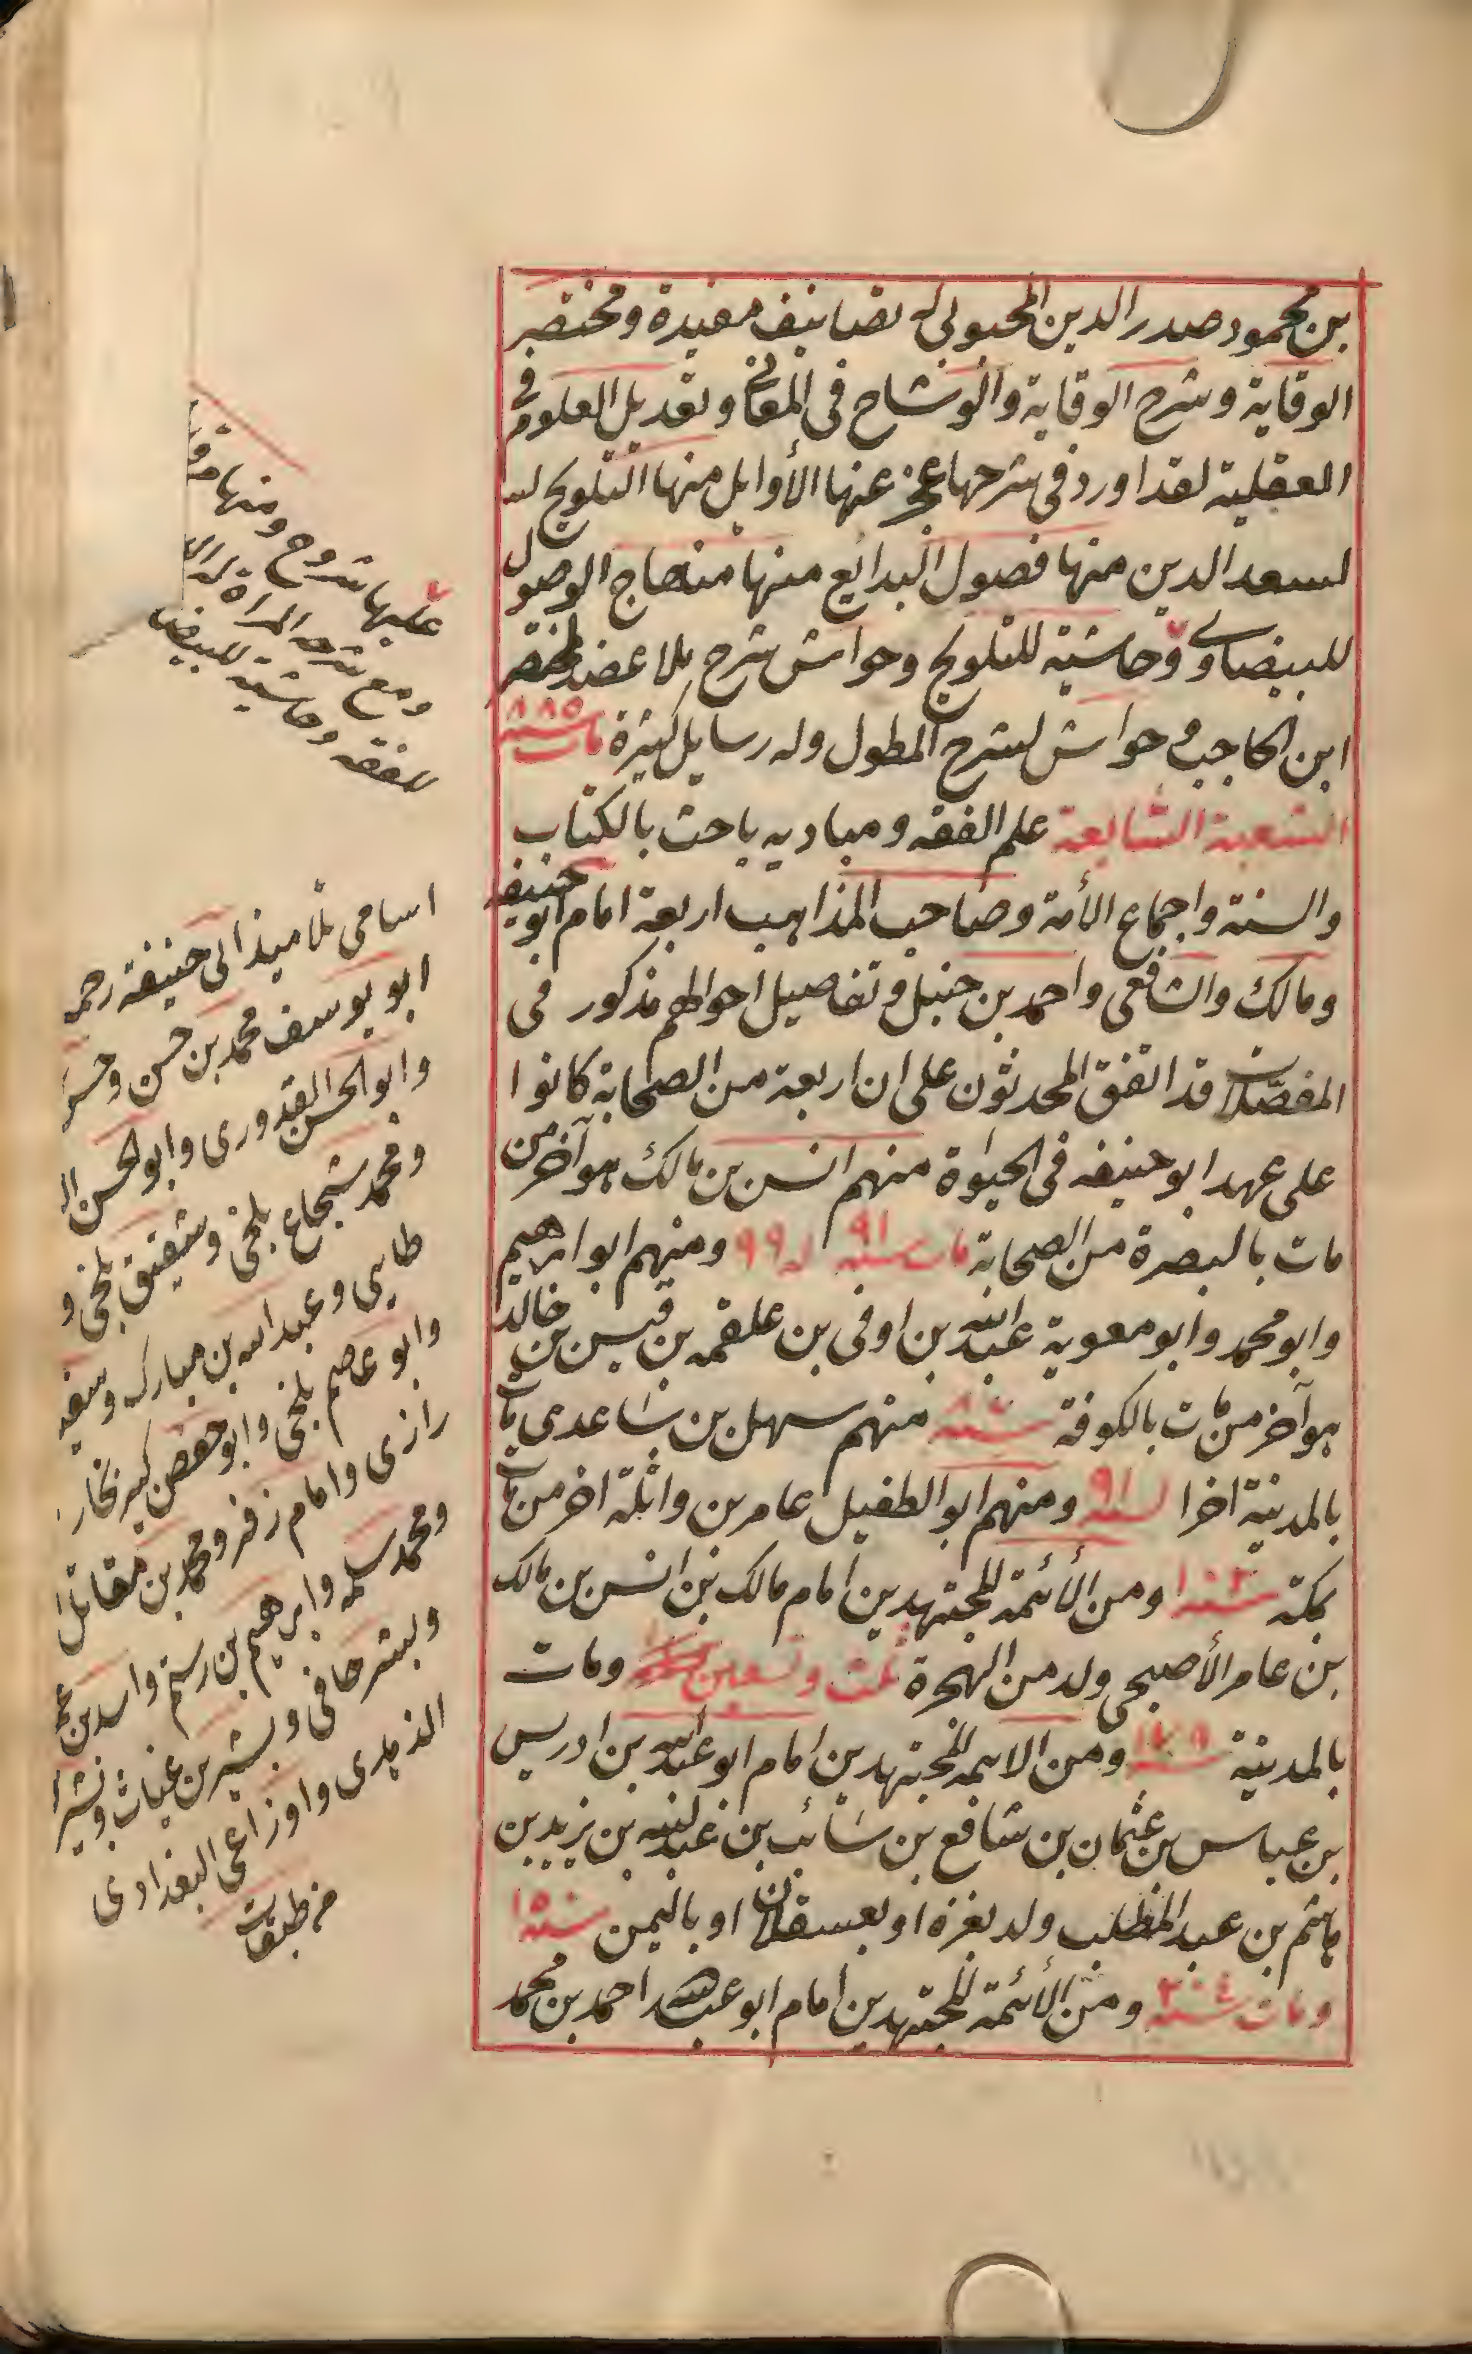 بن محمود صدر الدين المحبوبي له تصانيف مفيدة ومختصر
الوقاية وشرح الوقاية والوشاح في المعاني وتعديل العلوم في
العقلية لقد اورد في شرحها عجز عنها الأوايل منها التلويح
لسعد الدين منها فصول البدائع منها منهاج الوصول
للبيضاوي وحاشية للتلويح وحواش شرح ملا عضد لمختصر
ابن الحاجب وحواش لشرح المطول وله رسايل كثيرة مات سنة ٨٨٥
الشعبة السابعة علم الفقه ومباديه باحث بالكتاب
والسنة واجماع الأمة وصاحب المذاهب اربعة امام ابو حنيفة
ومالك والشافعي واحمد بن حنبل وتفاصيل احوالهم مذكور في
المفصلات قد اتفق المحدثون على ان اربعة من الصحابة كانوا
على عهد ابو حنيفه في الحيوة منهم انس بن مالك هو آخر من
مات بالبصرة من الصحابة مات سنه ٩١ له ٩٩ ومنهم ابو ابرهيم
وابو محمد وابو معوية عبد الله بن اوفى بن علقمه بن قيس بن خالد
هو آخر من مات بالكوفة منهم سهل بن ساعدي مات
بالمدينة اخرا سنه ٩١ ومنهم ابو الطفيل عامر بن واثلة اخر من مات
بمكة ومن الأئمة المجتهدين امام مالك بن انس بن مالك
بن عامر الأصبحي ولد من الهجرة ثلث وتسعين ومات
بالمدينة ومن الايمه المجتهدين امام ابو عبد الله بن ادريس
بن عباس بن عثمان بن شافع بن سائب بن عبد الله بن يزيد بن
هاشم بن عبد المطلب ولد بغزه او بعسقلان او باليمن سنة ١٥٠
ومات سنة ٢٠٤ ومن الأئمة المجتهدين امام ابو عبد الله احمد بن محمد
عليها شروح ومنها
ومع شرحه المراة
وحاشية للبيضا
للفقه
اسامى تلاميذ ابى حنيفة رحمه
ابو يوسف محمد بن حسن وحسن
وابو الحسن القدورى وابو الحسن
ومحمد شجاع بلخى وشقيق بلخى و
طايى وعبد الله بن مبارك وسفيه
وابو عاصم بلخى وابو حفص كبير بخار
رازى وامام زفر ومحمد بن مقاتل
ومحمد سلمه وابرهيم بن رستم واسد بن
وبشر حافى وبشير بن غياث وبشر
واوزاعى البغدادى
من طبقات